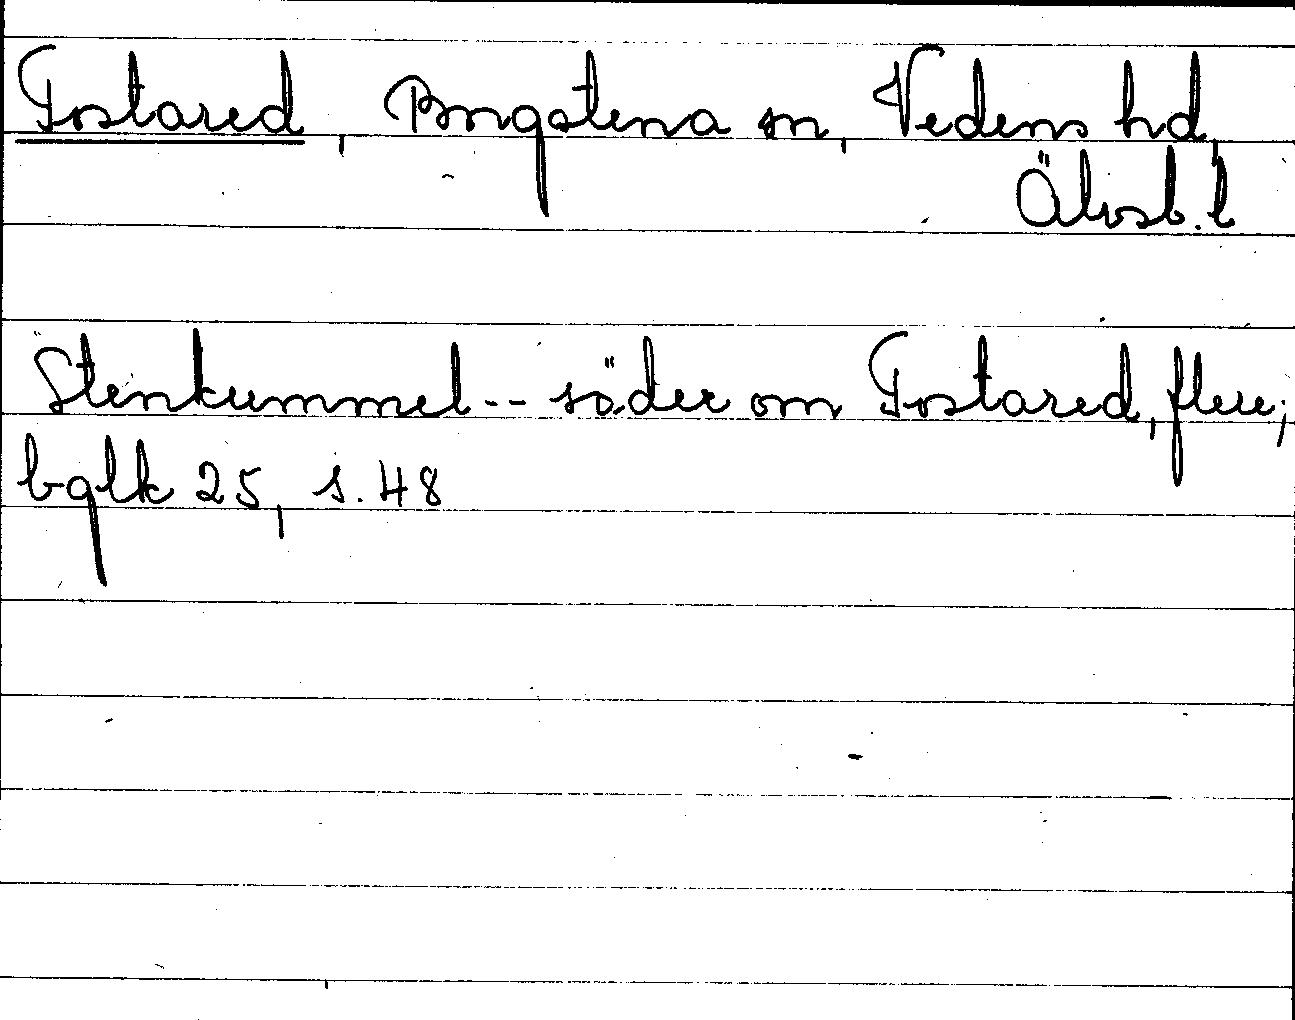 Tostared, Borgstena sn, Vedens hd,
Älvsb. l
Stenkummel -- söder om Tostared, flere;
bglk 25, s. 48